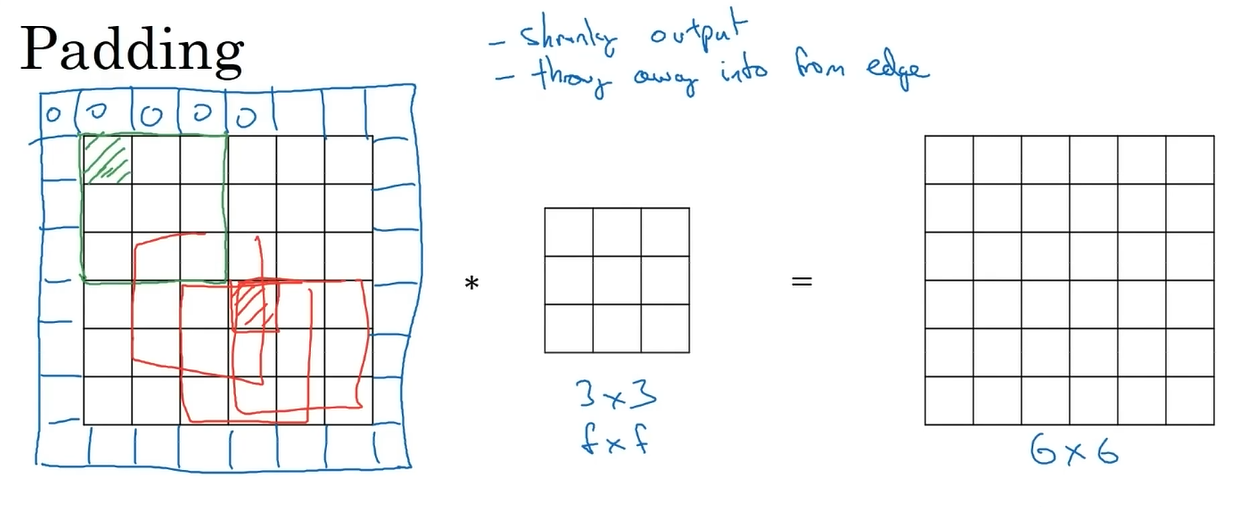 Padding
- shrinky output
- throw away info from edge
0 0 0 0 0
* =
3 × 3
f × f
6 × 6